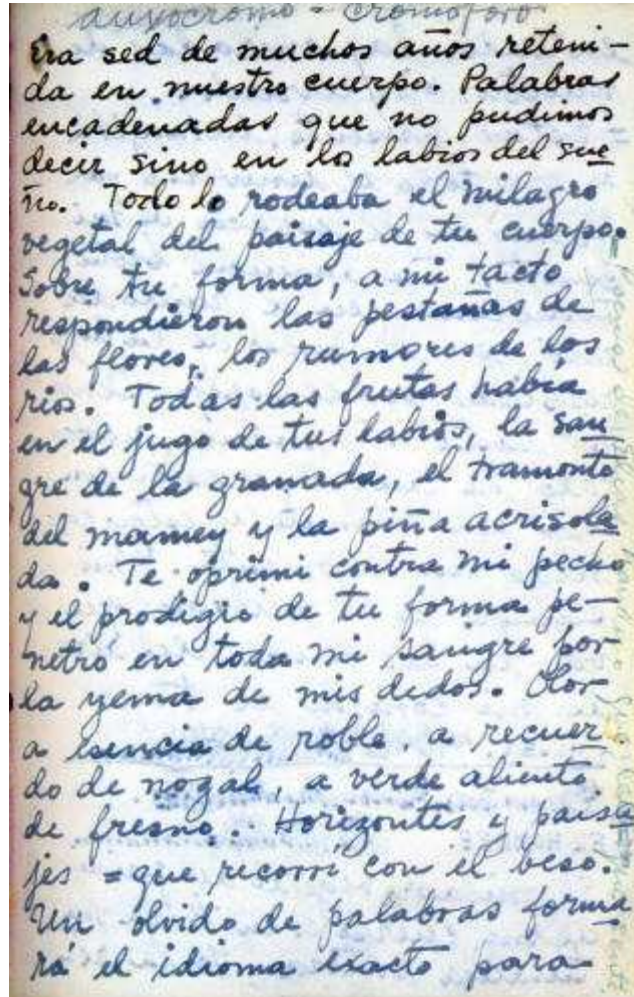 auxocromo = Cromoforo
Era sed de muchos años reteni-
da en nuestro cuerpo. Palabras
encadenadas que no pudimos
decir sino en los labios del sue
ño. Todo lo rodeaba el milagro
vegetal del paisaje de tu cuerpo.
Sobre tu forma, a mi tacto
respondieron las pestañas de
las flores, los rumores de los
rios. Todas las frutas había
en el jugo de tus labios, la san
gre de la granada, el tramonto
del mamey y la piña acrisola
da. Te oprimi contra mi pecho
y el prodigio de tu forma pe-
netró en toda mi sangre por
la yema de mis dedos. Olor
a esencia de roble, a recuer
do de nogal, a verde aliento
de fresno. Horizontes y paisa
jes = que recorrí con el beso.
Un olvido de palabras forma
rá el idioma exacto para